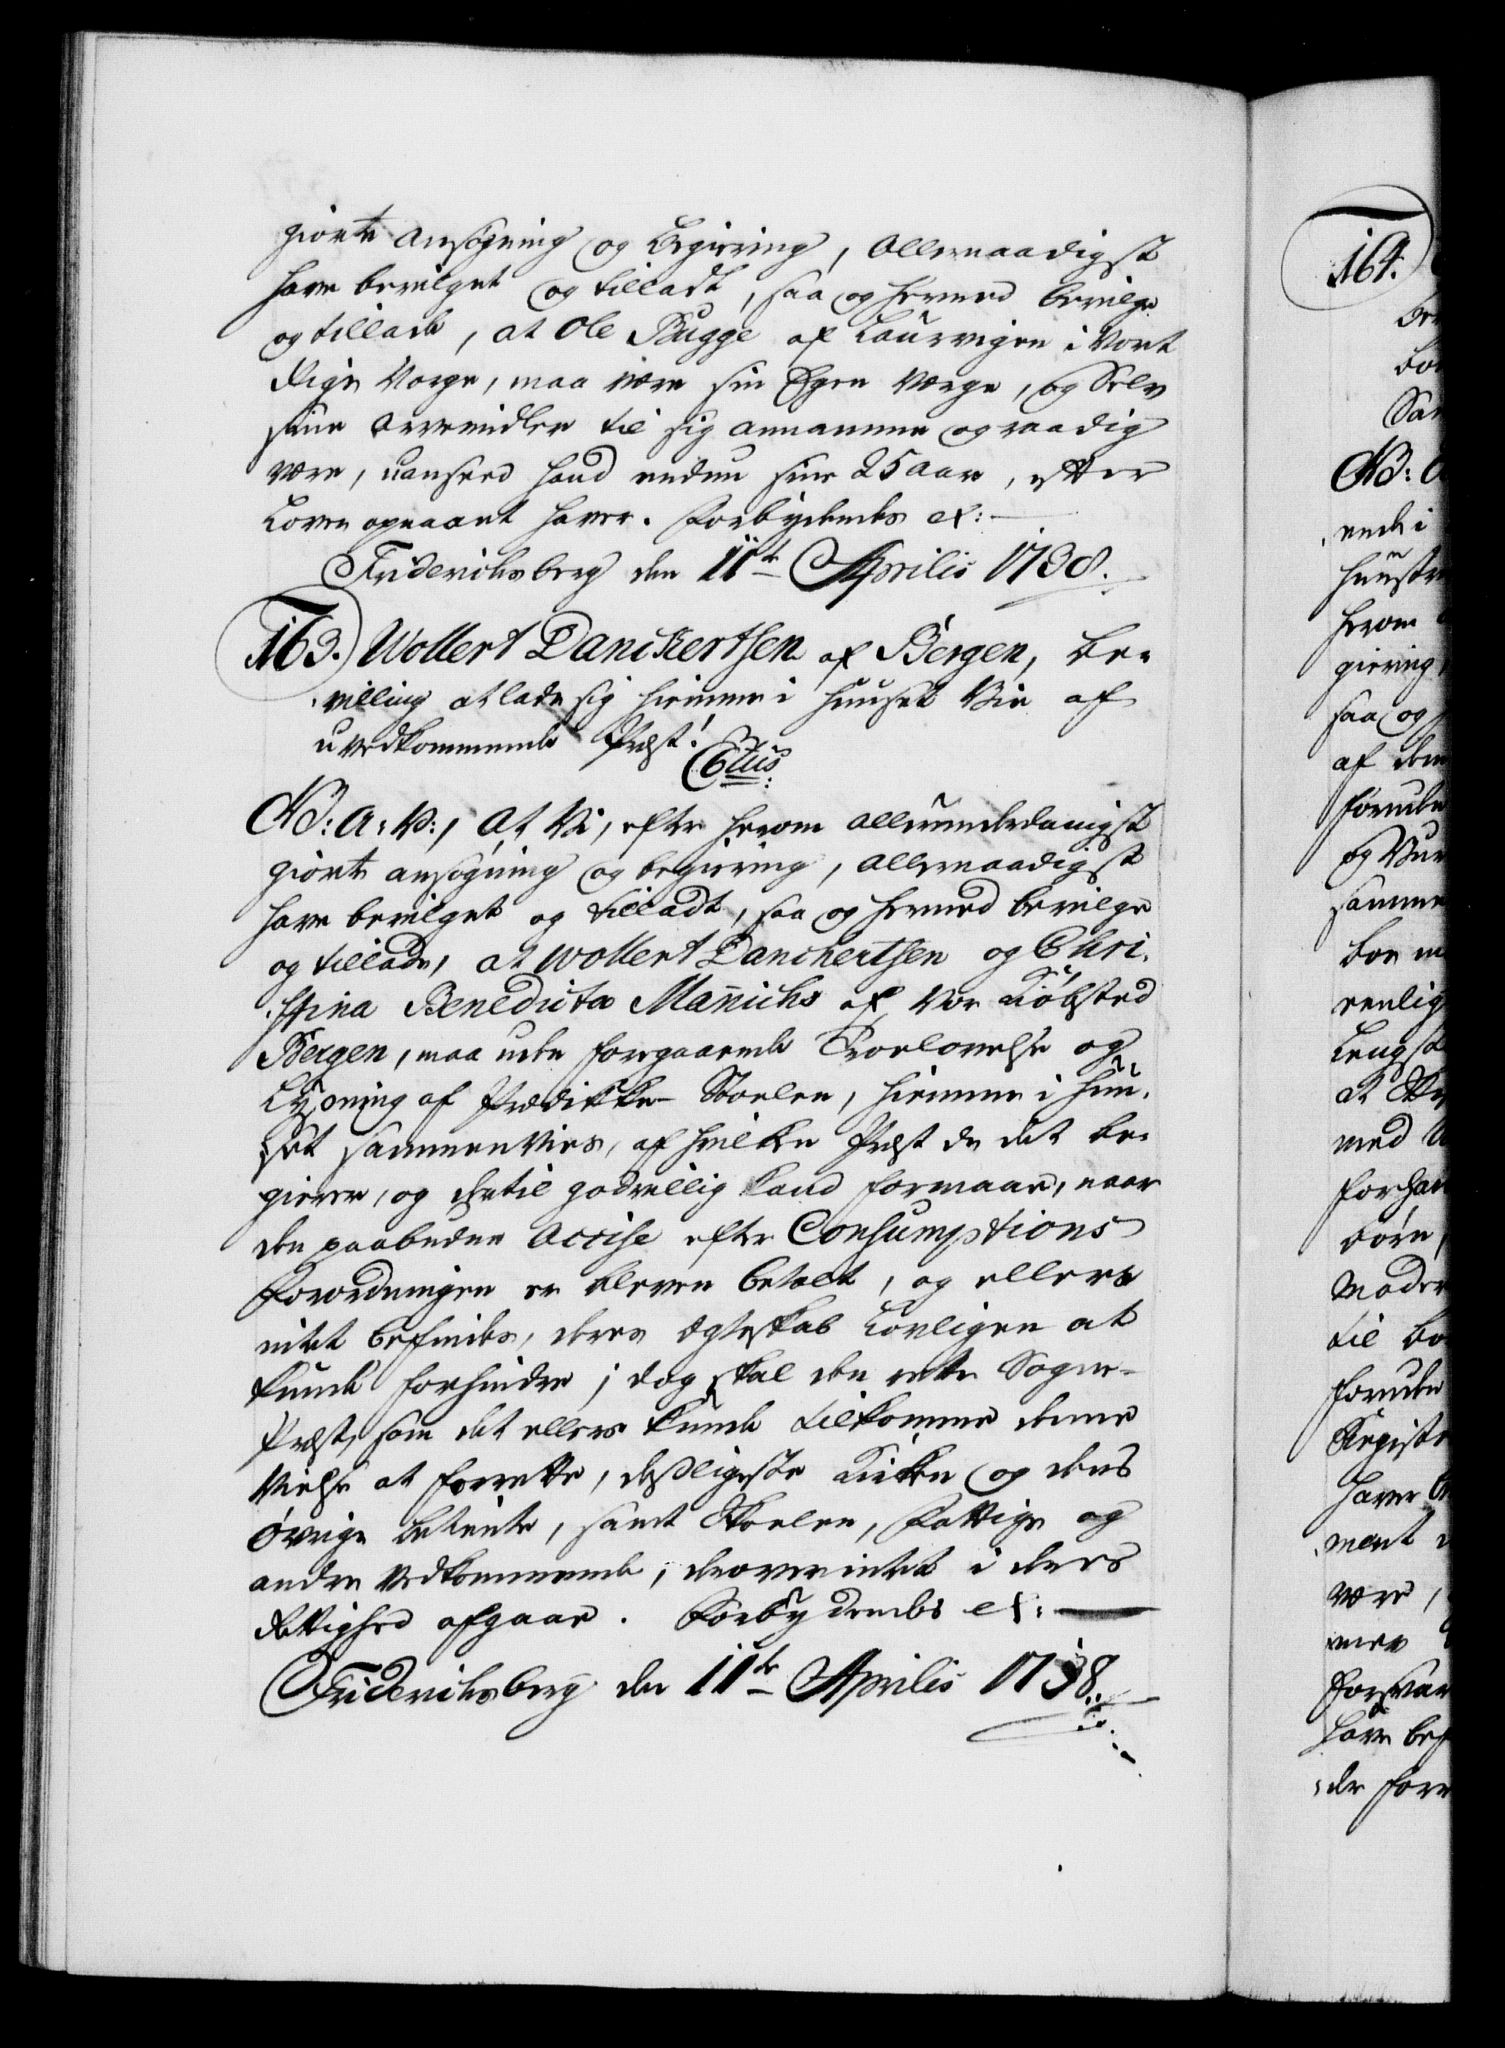 giorte ansøgning og begiering, allernaadigst
have bevilget og tilladt, saa og hermed bevilge
og tillade, at Ole Bugge af Laurvigen i Vort
Rige Norge, maa være sin Egen Værge, og Selv
sine arvemidler til sig annamme og raadig
være, uanseed hand endnu sine 25 aar, efter
Loven opnaaet haver. Forbydendes etc:
Friderichsberg den 11te Aprilis 1738.
163. Wollert Danckertsen af Bergen, be-
villing at lade sig hiemme i Huuset Vie af
uvedkommende Præst!
C6tus
N3: A: V:, At Vi, efter herom allerunderdanigst
giorte ansøgning og begiering, allernaadigst
have bevilget og tilladt, saa og hermed bevilge
og tillade, at Wollert Danchertsen og Chri-
stina Benedicta Mannichs af Vor Kiøbsted
Bergen, maa uden foregaaende Troelovelse og
Lysning af Prædikke-Stoelen, hiemme i Huu-
set sammenvies, af hvilken Præst de det be-
gierer, og dertil godvillig kand formaae, naar
den paabudne Accise efter Consumptions
Forordningen er bleven betalt, og ellers
intet befindes, deres ægteskab Lovligen at
kunde forhindre; dog skal den rette Sogne-
Præst, som det ellers kunde tilkomme denne
Vielse at forrette, desligeste Kirken og dens
øvrige betiente, samt Skoelen, Fattige og
andre Vedkommende, derover intet i deres
Rettighed afgaae. Forbydendes etc:
Friderichsberg den 11te Aprilis 1738.
164.